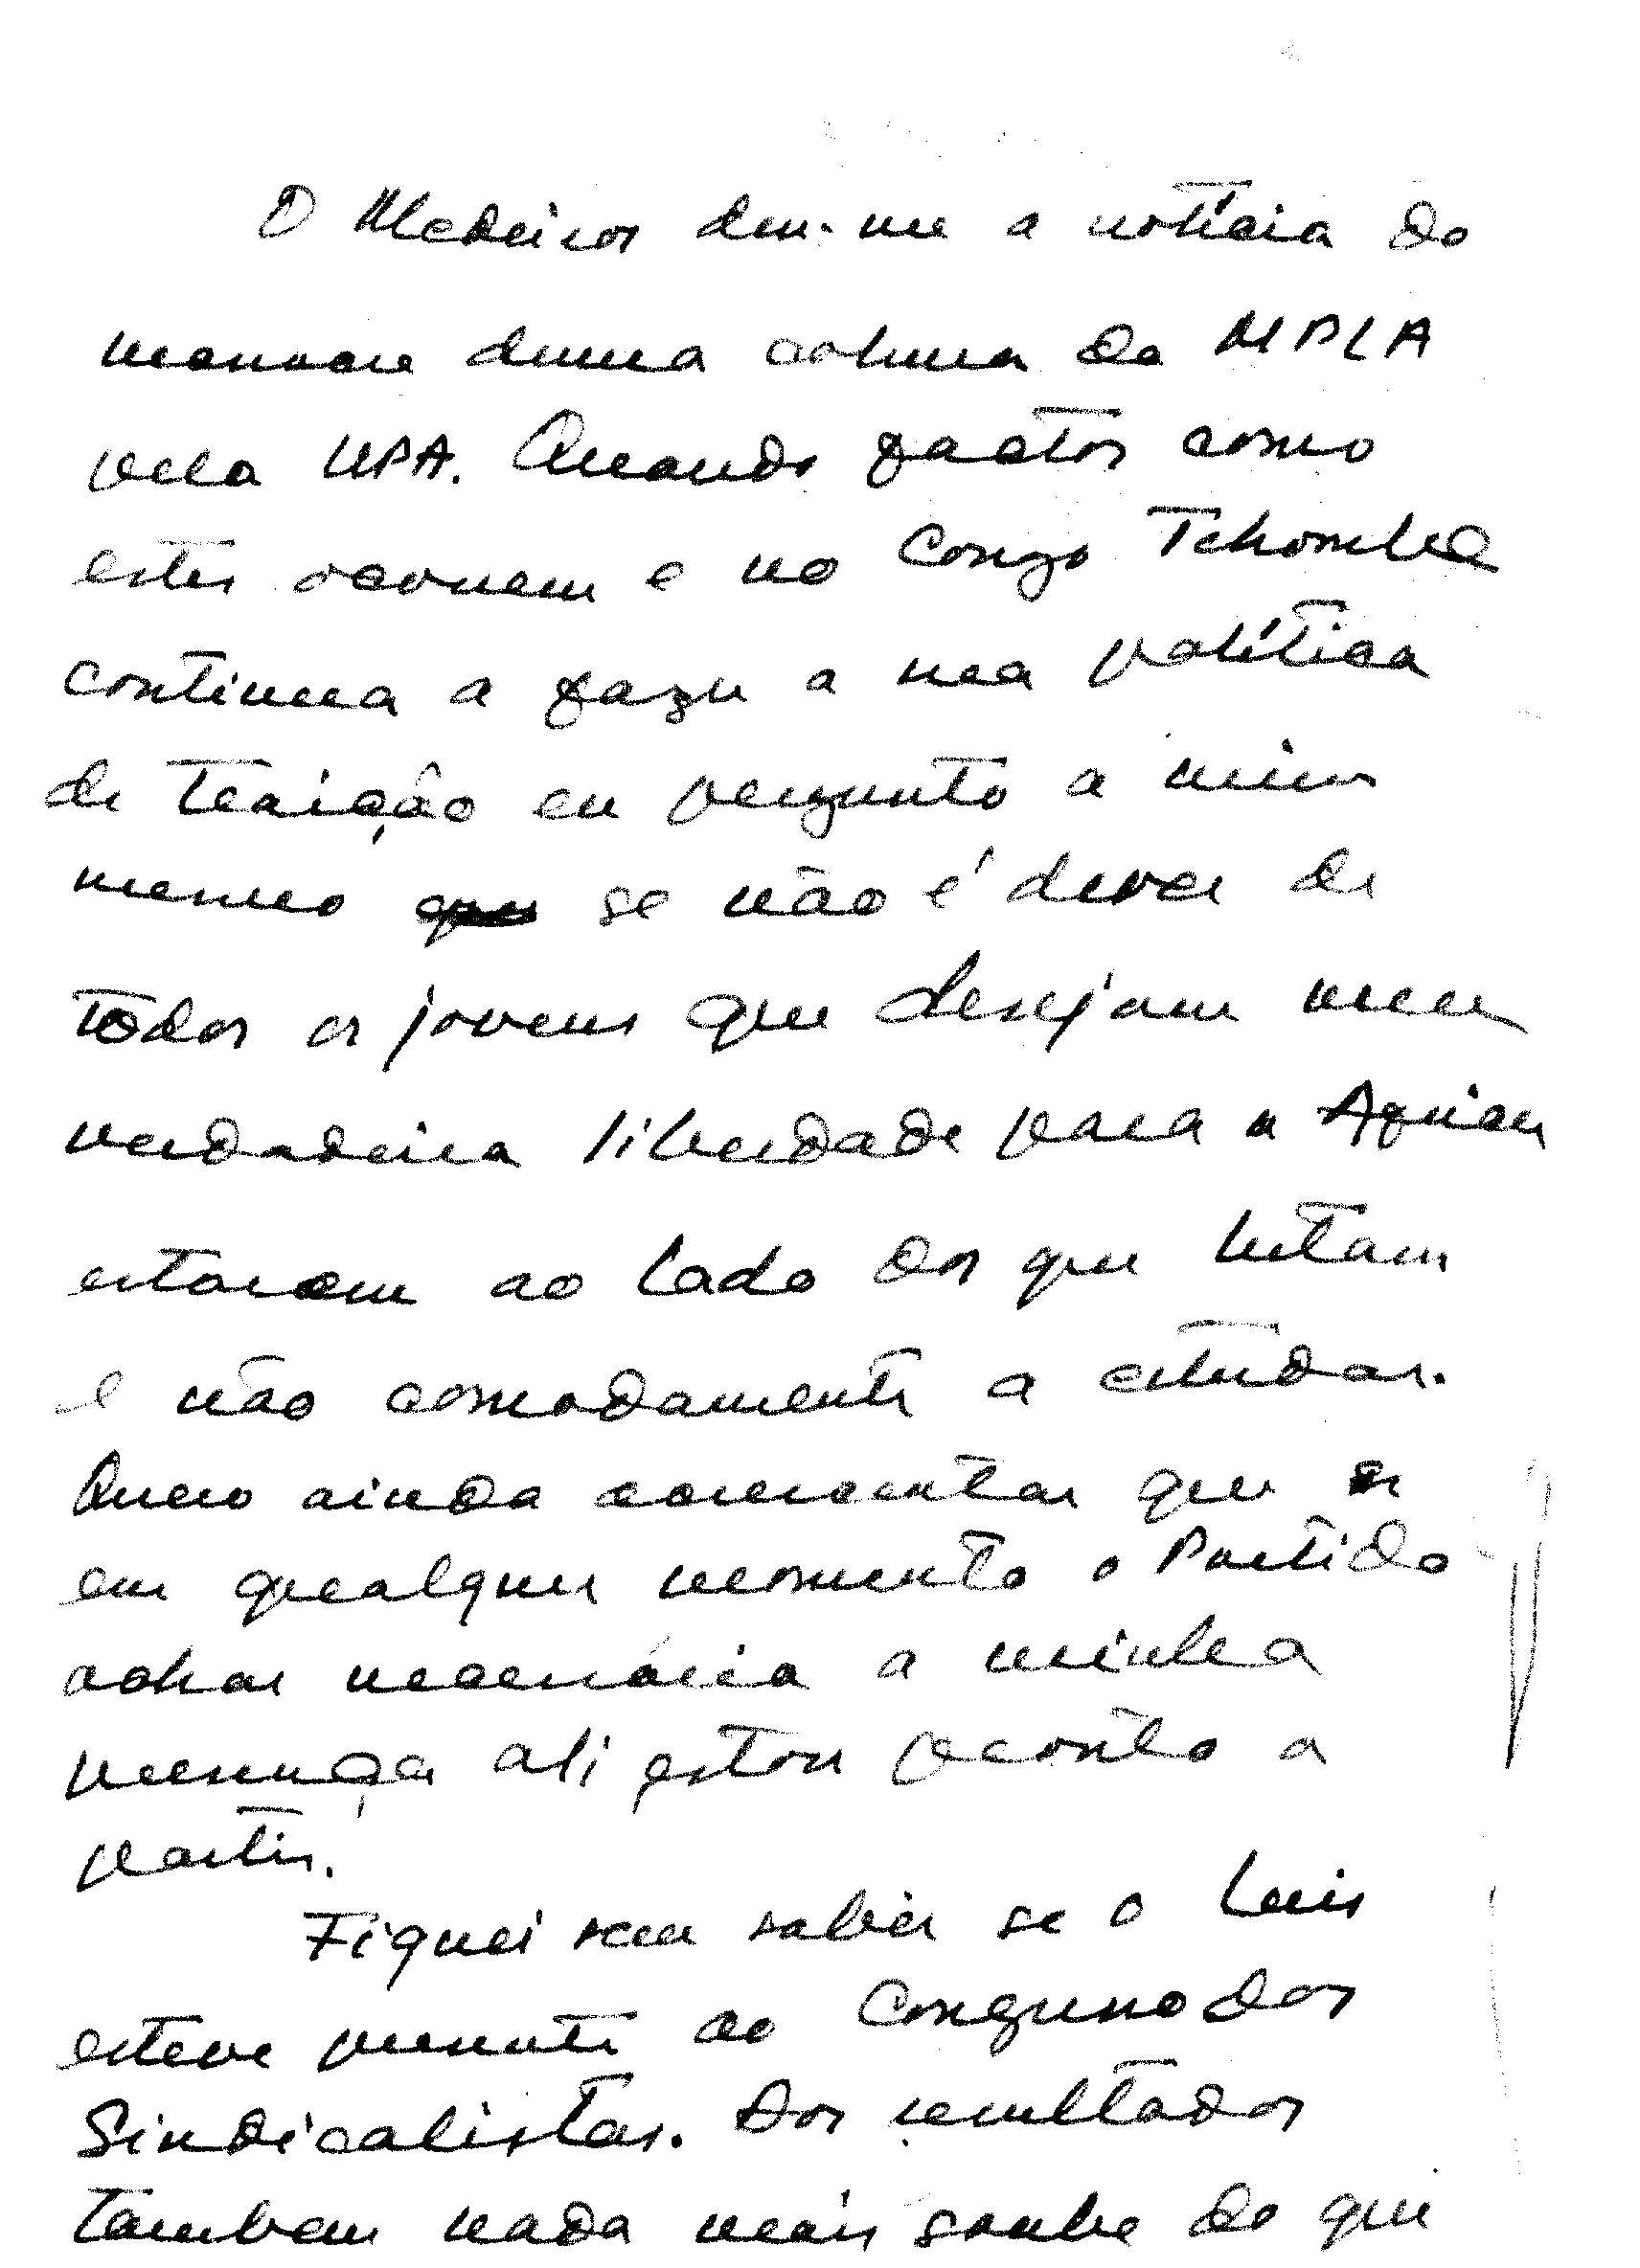 O Medeiros deu-me a notícia do
massacre duma coluna do MPLA
pela UPA. Quando factos como
estes ocorrem e no Congo Tchombe
continua a fazer a sua política
de traição eu pergunto a mim
mesmo que se não é dever de
todos os jovens que desejam uma
verdadeira liberdade para a África
estarem ao lado dos que lutam
e não comodamente a estudar.
Quero ainda acrescentar que se
em qualquer momento o Partido
achar necessária a minha
presença ali estou pronto a
partir.
Fiquei sem saber se o Luis
esteve presente ao Congresso dos
Sindicalistas. Dos resultados
tambem nada mais soube do que